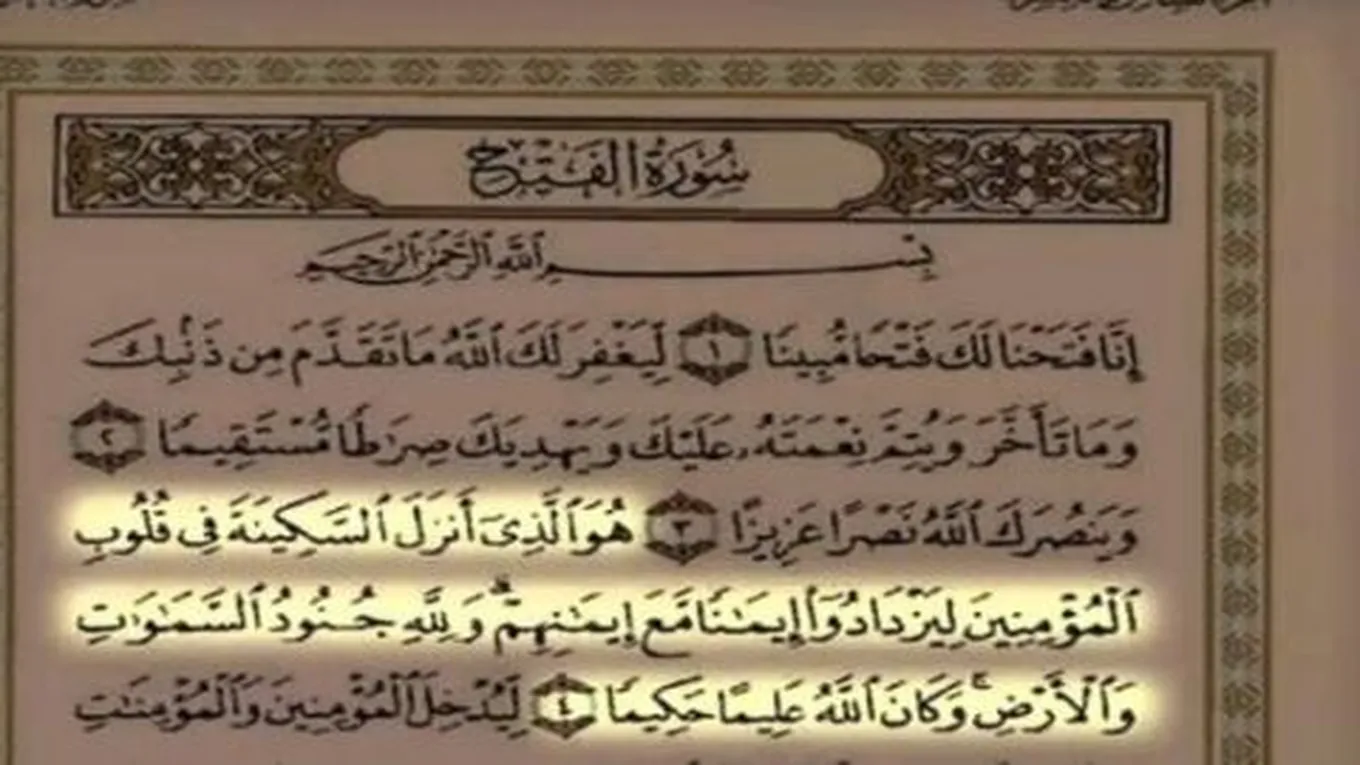 سُورَةُ الْفَتْحِ
بِسْمِ ٱللَّهِ ٱلرَّحْمَٰنِ ٱلرَّحِيمِ
إِنَّا فَتَحْنَا لَكَ فَتْحًا مُّبِينًا ١ لِّيَغْفِرَ لَكَ ٱللَّهُ مَا تَقَدَّمَ مِن ذَنۢبِكَ
وَمَا تَأَخَّرَ وَيُتِمَّ نِعْمَتَهُۥ عَلَيْكَ وَيَهْدِيَكَ صِرَٰطًا مُّسْتَقِيمًا ٢
وَيَنصُرَكَ ٱللَّهُ نَصْرًا عَزِيزًا ٣ هُوَ ٱلَّذِىٓ أَنزَلَ ٱلسَّكِينَةَ فِى قُلُوبِ
ٱلْمُؤْمِنِينَ لِيَزْدَادُوٓا۟ إِيمَٰنًا مَّعَ إِيمَٰنِهِمْ ۗ وَلِلَّهِ جُنُودُ ٱلسَّمَٰوَٰتِ
وَٱلْأَرْضِ ۚ وَكَانَ ٱللَّهُ عَلِيمًا حَكِيمًا ٤ لِّيُدْخِلَ ٱلْمُؤْمِنِينَ وَٱلْمُؤْمِنَٰتِ